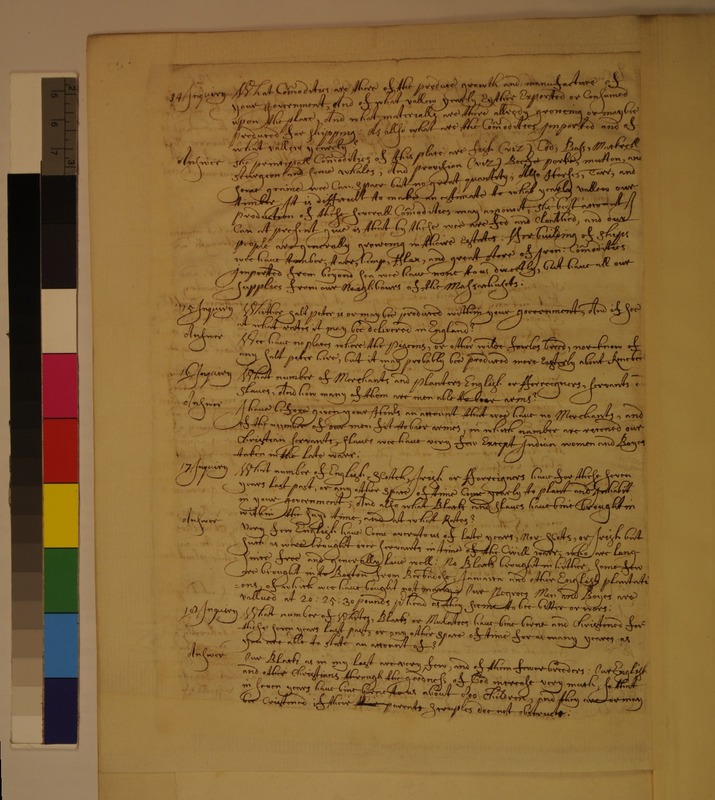 14 Inquiry What Comodities are there of the produce growth and manufacture of
your Government, And of what vallew yearly Eyther Exported or Consumed
upon the place, And what materially are there allredy growing or maybe
produced for shipping: As allso what are the Comodities Imported and of
what vallew yearely?
Answer The principall Comodities of this place are Fish (viz) Cod, Bass, Mackrell
Sturgeon and some whales, And provision (viz) Beoffe porke, mutton, and
some graine wee Can spare but no great quantity, Also Horses, Tarr, and
timber Itt is difficult to make an estimate to what yearly vallew our
production of these severall Comodities may amount, The best account I
Can at present give is that by these wee are fed and Cloathed, and our
people are generally growing in theire Estates: For building of ships
wee have timber, tarr, hemp, flax, and great store of Iron: Comodities
Imported from beyond sea wee have none to us directly, but have all our
supplies from our Neighbours of the Massachusets.
15 Inquiry Whether salt peter is or may be produced within your government, And if soe
at what rates it may be delivered in England?
Answer Wee have no places where the Pigeons, or other wilde fowles breed, nor know of
any salt peter here, but it may probably bee produced more Easterly about
16 Inquiry What number of Merchants and planters English or Forreigners, servants &
slaves, And how many of them are men able to bear armes?
Answer I have before given your Honrs an account that wee have no Merchants, and
of the number of our men fit to bear armes, in which number are reconed our
Christian servants, slaves wee have very few Except Indian women and Boyes
taken in the late warr.
17 Inquiry What number of English, Scotch, Irish or Forreigners have for these seven
yeares last past, or any other space of time Come yearly to plant and Inhabit
in your government, And also what Blacks and slaves have bine brought in
within the said time, and at what Rates?
Answer Very few English have Come over to us of late yeares, Nor Scots, or Irish but
such as were brought over servants in time of the Civill warr, who are long
since free and generally live well: No Blacks brought in hether, some few
are brought into Boston from Barbadoes, Jamaica and other English plantati
ons, of which wee have bought not many Our Negroes Men and Boyes are
vallued at 20: 25: 30 pounds pr head as they seeme to bee better or worse:
18 Inquiry What number of Whites, Blacks or Mulatoes have bine borne and Christened for
these seven yeares last past, or any other space of time for as many yeares as
you are able to state an account of?
Answer Our Blacks as in my last are very few, and of them fewer breeders: Our English
and other Christians through the goodness of God increase very much, so that
in seven yeares have bine borne to us about children, and they are or may
bee Cristened if their parents scruples doe not obstruct.